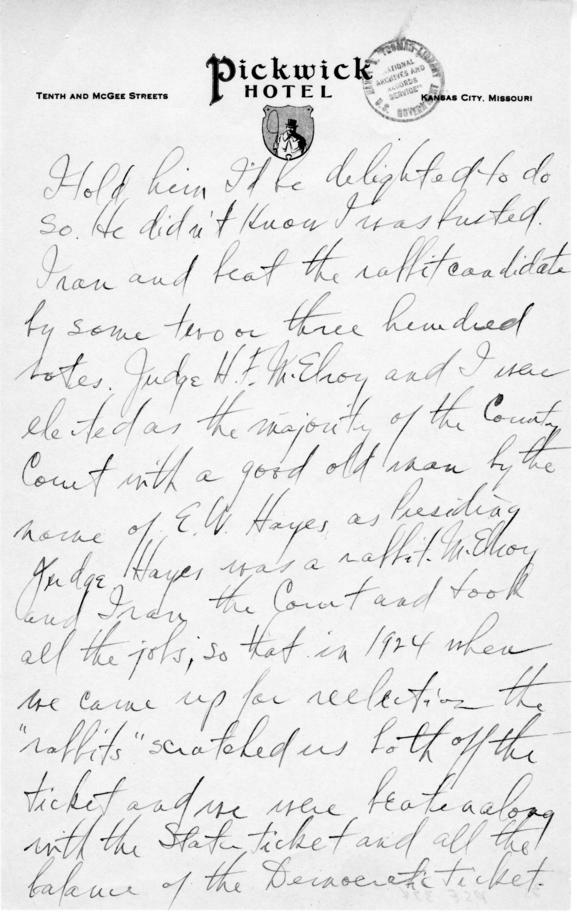 Pickwick
HOTEL
TENTH AND MCGEE STREETS
KANSAS CITY, MISSOURI
NATIONAL
ARCHIVES AND
RECORDS
SERVICE
I told him I'd be delighted to do
so. He didn't know I was busted.
I ran and beat the rabbit candidate
by some two or three hundred
votes. Judge H.F. McElroy and I were
elected as the majority of the County
Court with a good old man by the
name of E.W. Hayes as Presiding
Judge Hayes was a rabbit. McElroy
and I ran the Court and took
all the jobs, so that in 1924 when
we came up for reelection the
"rabbits" scratched us both off the
ticket and we were beaten along
with the State ticket and all the
balance of the Democratic ticket.